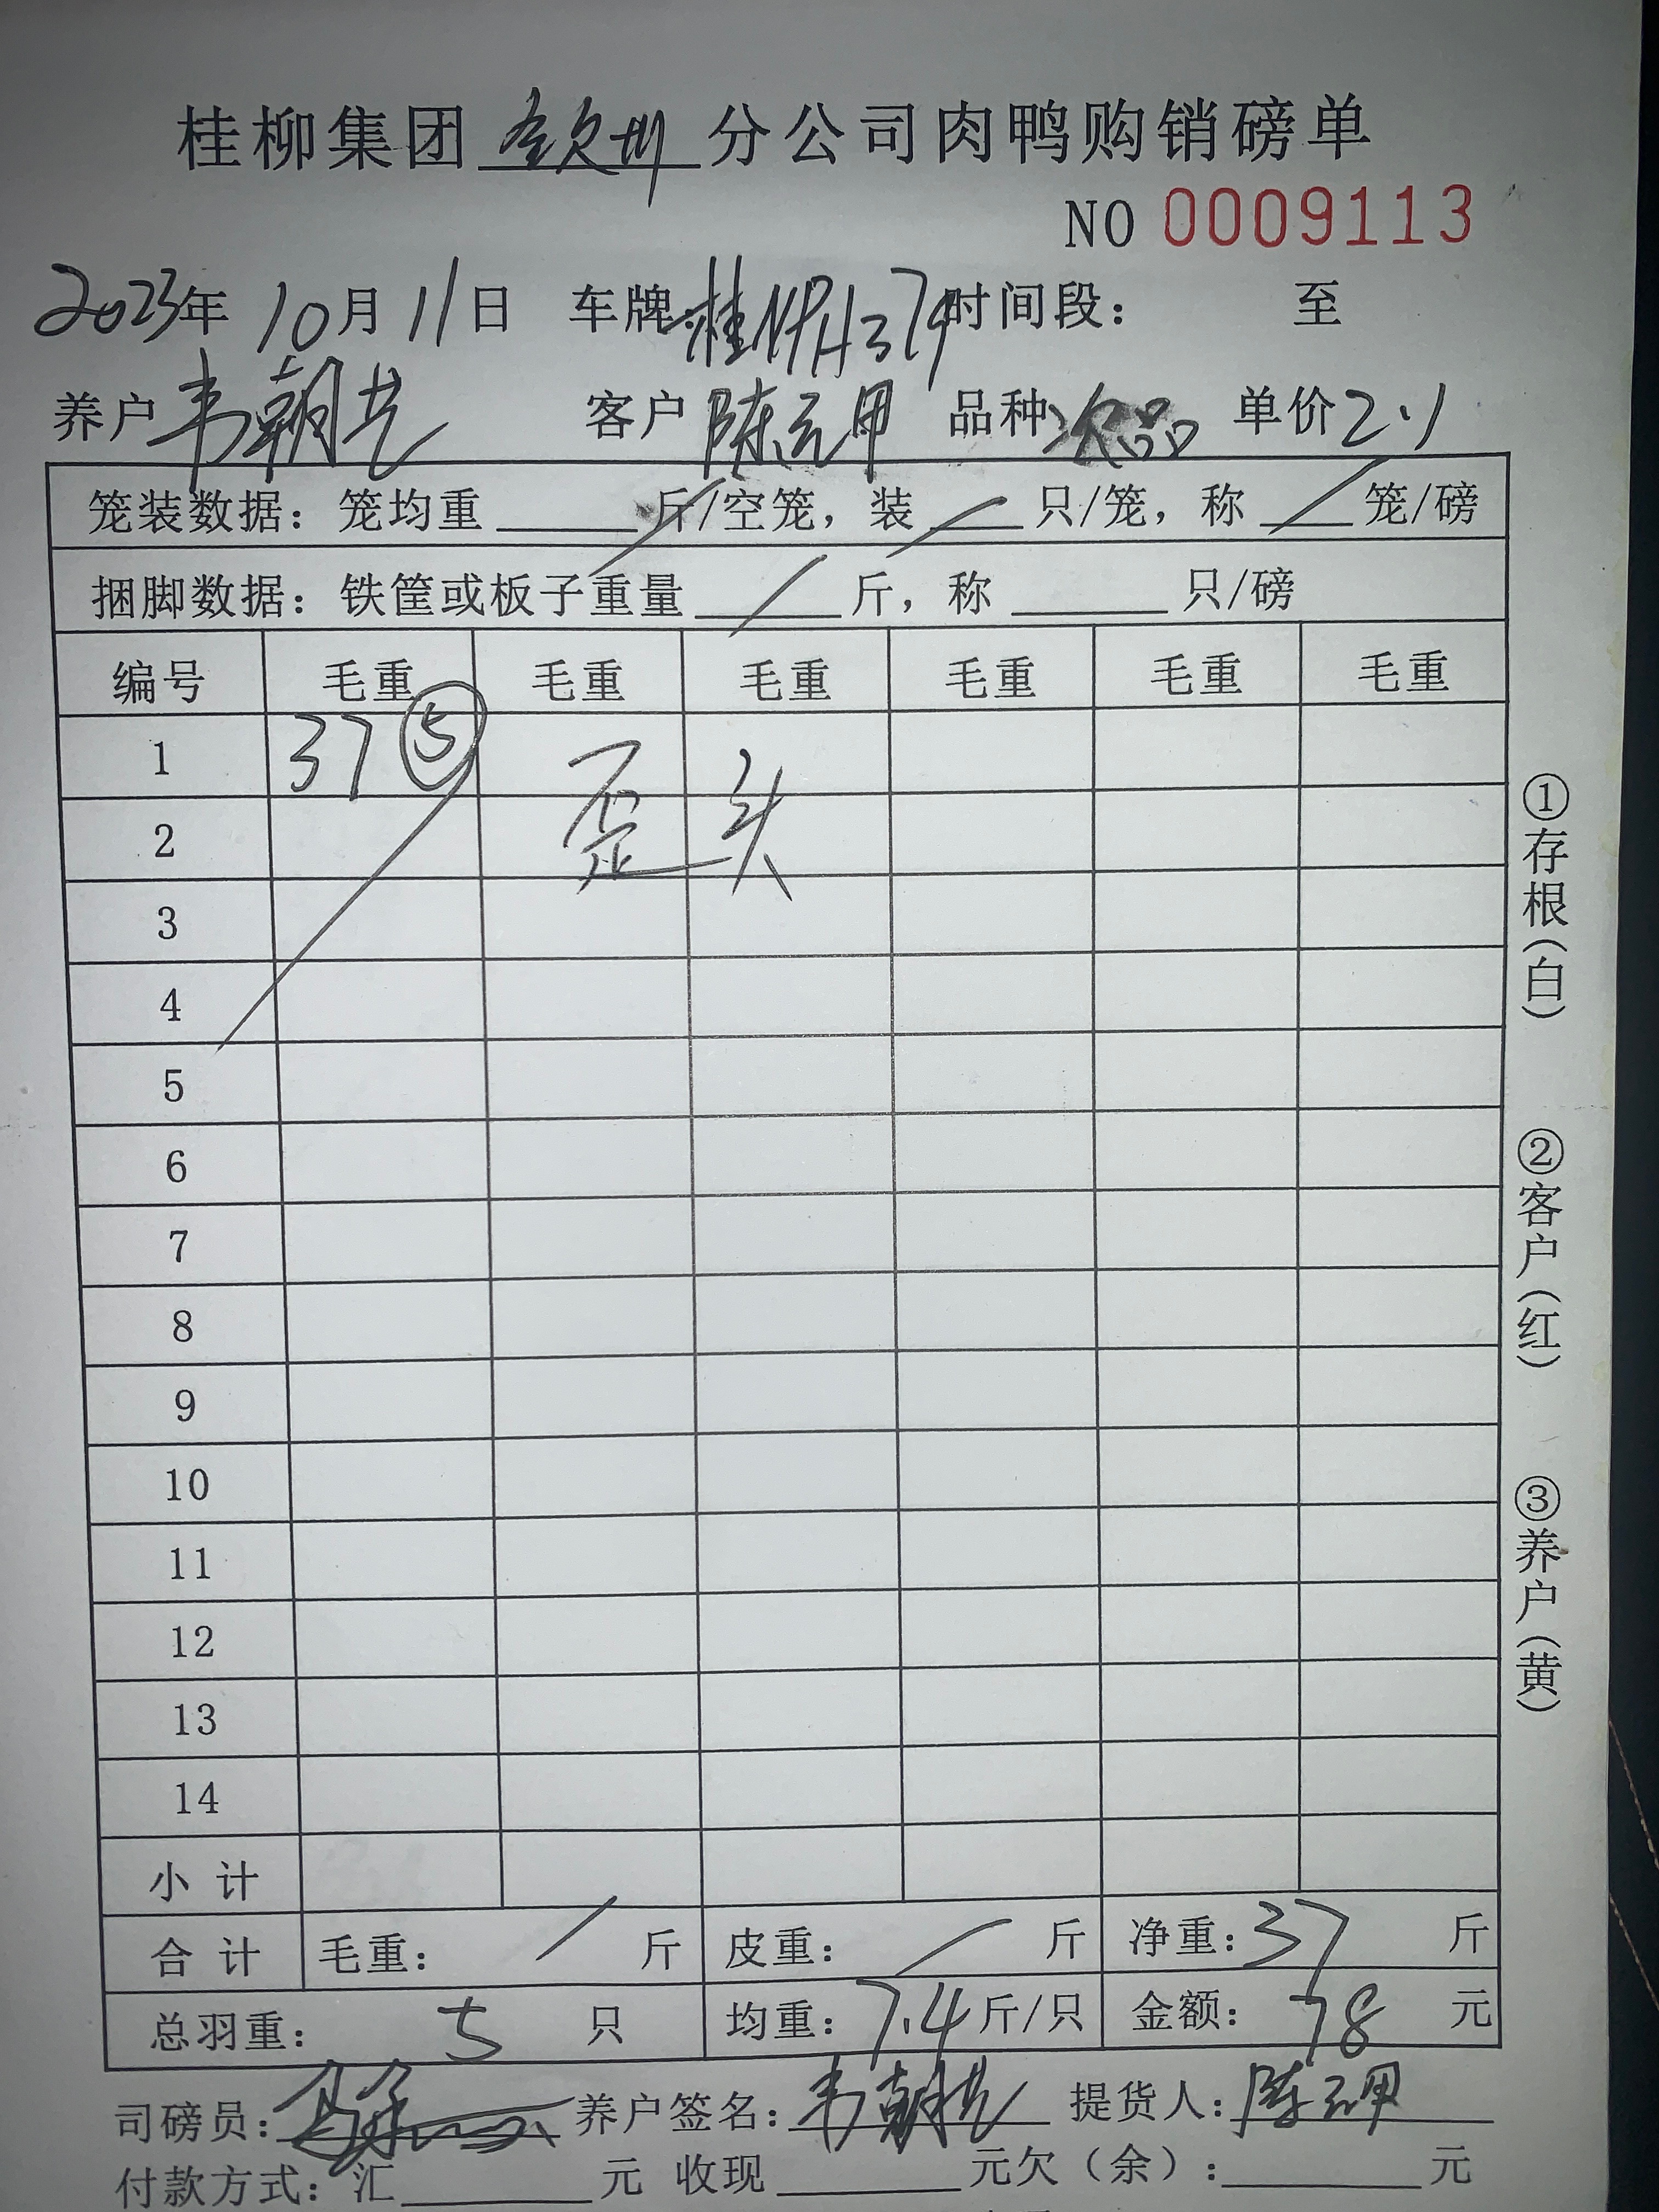 桂柳集团 钦州 分公司肉鸭购销磅单
NO 0009113
2023年 10月 11日 车牌:桂NPH379 时间段: 至
养户 韦朝艺 客户 陈元甲 品种 次品 单价 2.1
笼装数据: 笼均重 斤/空笼, 装 只/笼, 称 笼/磅
捆脚数据: 铁筐或板子重量 斤, 称 只/磅
编号 毛重 毛重 毛重 毛重 毛重 毛重
1 37 ⑤
歪头
2
3
4
5
6
7
8
9
10
11
12
13
14
小 计
合 计 毛重: / 斤 皮重: / 斤 净重: 37 斤
总羽重: 5 只 均重: 7.4 斤/只 金额: 78 元
司磅员: 养户签名: 韦朝艺 提货人: 陈元甲
付款方式: 汇 元 收现 元欠(余): 元
①存根(白)
②客户(红)
③养户(黄)